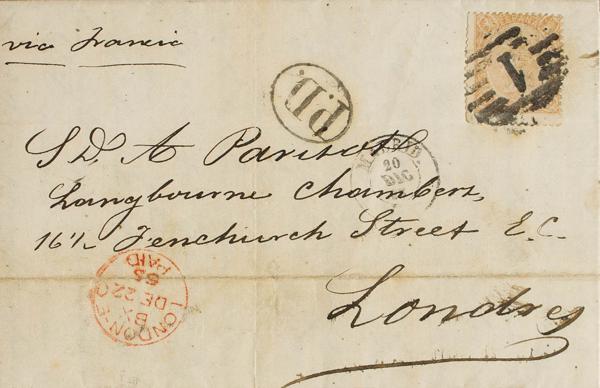 via Francia
1
P.D.
MADRID
20
DIC
S.D. A Parisot
Langbourne Chambers,
16½ Fenchurch Street E.C.
Londres
LONDON-E.C
BX
DE 22
65
PAID